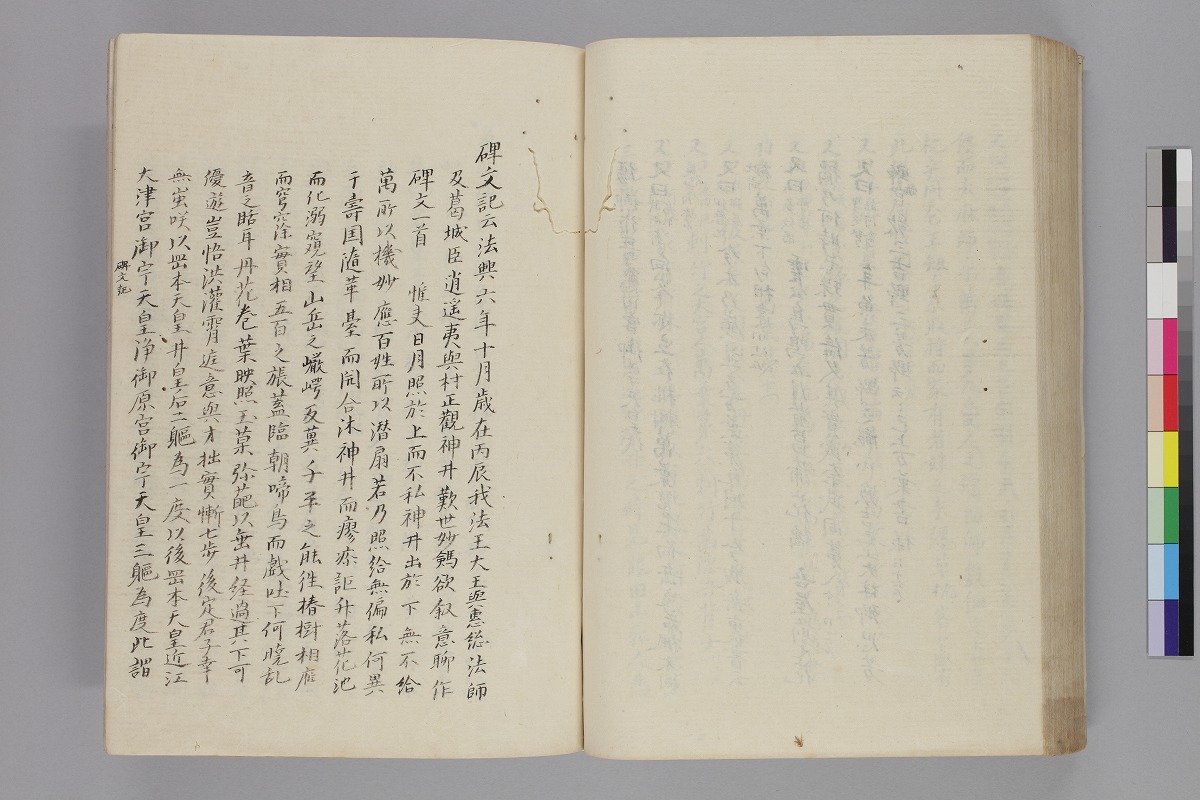 碑文記云法興六年十月歳在丙辰我法王大王與惠総法師
及葛城臣逍遥夷與村正觀神井歎世妙驗欲叙意聊作
碑文一首 惟夫日月照於上而不私神井出於下無不給
萬所以機妙應百姓所以潜扇若乃照給無偏私何異
于壽国隨華臺而開合沐神井而瘳疹詎舛落花池
而化溺窺望山岳之巌崿反冀子平之能往椿樹相廕
而穹窿實相五百之張蓋臨朝啼鳥而戯吐下何曉乱
音之聒耳丹花巻葉映照玉菓弥葩以垂井経過其下可
優遊豈悟洪灌霄庭意與才拙實慚七歩後定君子幸
無蚩咲以岡本天皇并皇后二軀為一度以後岡本天皇近江
大津宮御宇天皇浄御原宮御宇天皇三軀為度此謂
碑文記